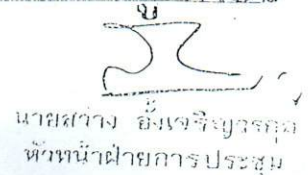 นายสว่าง อึ้งเจริญวรกุล
หัวหน้าฝ่ายการประชุม